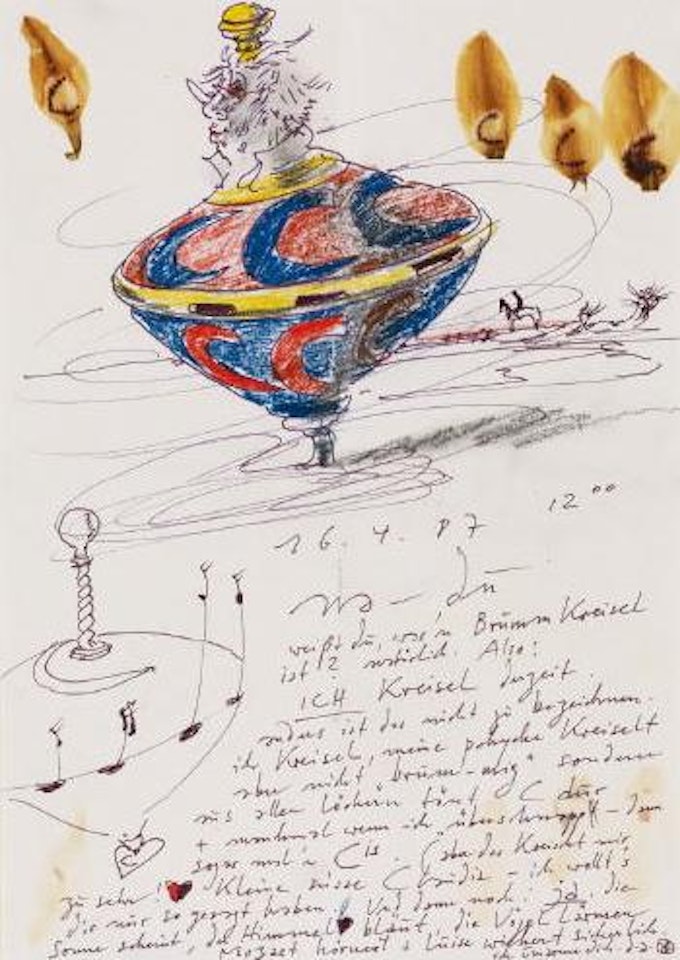 16. 4. 87 12⁰⁰
na – du
weißt du, was'n Brumm Kreisel
ist? natürlich. Also:
ICH Kreisel derzeit.
anders ist das nicht zu bezeichnen.
ich Kreisel, meine Psyche Kreiselt
aber nicht "brumm-mig" sondern
aus allen Löchern tönt C dur
+ manchmal wenn ich überschnapp – dann
sogar mal'n Cis. (aber das Kreiselt mir
zu sehr! Kleine süsse Claudia – ich wollt's
dir nur so gesagt haben! Und dann noch: ja, die
Sonne scheint, der Himmel blaut, die Vögel lärmen
Mozart hörnert + Luise wiehert sicherlich.
ich umarme dich da